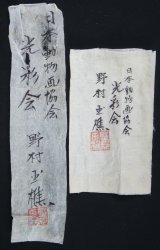 日本動物画協会
光彩会
野村玉樵
日本動物画協会
光彩会
野村玉樵